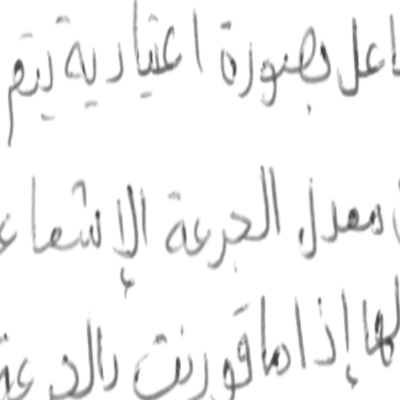 اعل بصورة اعتيادية يتم
معدل الجرعة الإشعاع
لها إذا ما قورنت بالجرعة